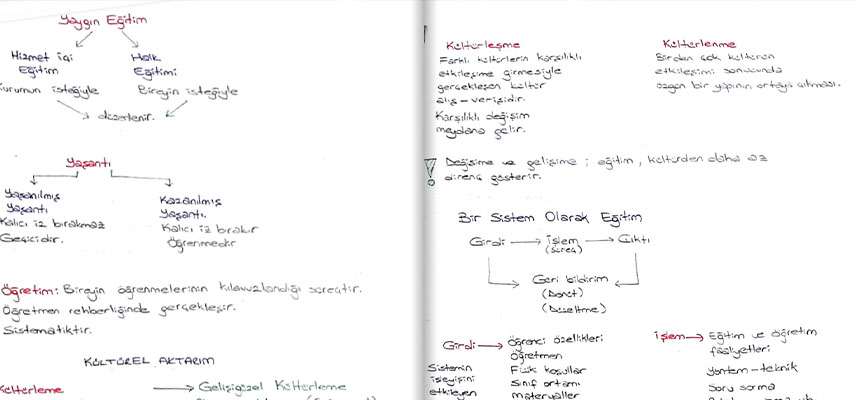 Yaygın Eğitim
Hizmet içi
Eğitim
Kurumun isteğiyle
Halk
Eğitimi
Bireyin isteğiyle
düzenlenir.
Yaşantı
Yaşanılmış
Yaşantı
Kalıcı iz bırakmaz
Geçicidir.
Kazanılmış
Yaşantı.
Kalıcı iz bırakır
Öğrenmedir
Öğretim: Bireyin öğrenmelerinin kılavuzlandığı süreçtir.
Öğretmen rehberliğinde gerçekleşir.
Sistematiktir.
KÜLTÜREL AKTARIM
Kültürleme → Gelişigüzel Kültürleme
Kültürleşme
Farklı kültürlerin karşılıklı
etkileşime girmesiyle
gerçekleşen kültür
alış-verişidir.
Karşılıklı değişim
meydana gelir.
Kültürlenme
Birden çok kültürün
etkileşimi sonucunda
özgün bir yapının ortaya çıkması.
! Değişime ve gelişime ; eğitim, kültürden daha az
direnç gösterir.
Bir Sistem Olarak Eğitim
Girdi → işlem → Çıktı
(süreç)
Geri bildirim
(Dönüt)
(Düzeltme)
Girdi → Öğrenci özellikleri
öğretmen
Sistemin Fizik koşullar
işleyişini Sınıf ortamı
etkileyen materyaller
işlem → Eğitim ve öğretim
faaliyetleri
Yöntem-teknik
Soru sorma